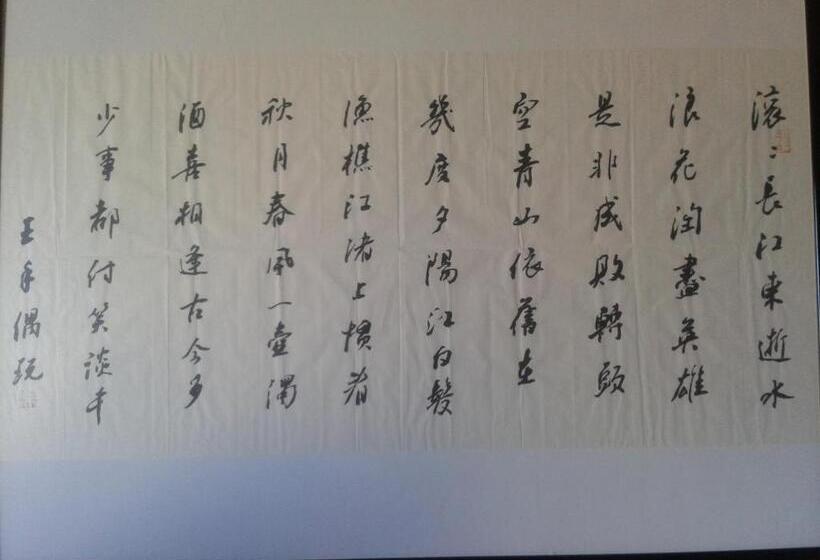 滚々長江東逝水
浪花淘盡英雄
是非成敗轉頭
空青山依舊在
幾度夕陽紅白髮
漁樵江渚上慣看
秋月春風一壺濁
酒喜相逢古今多
少事都付笑談中
王偶玩